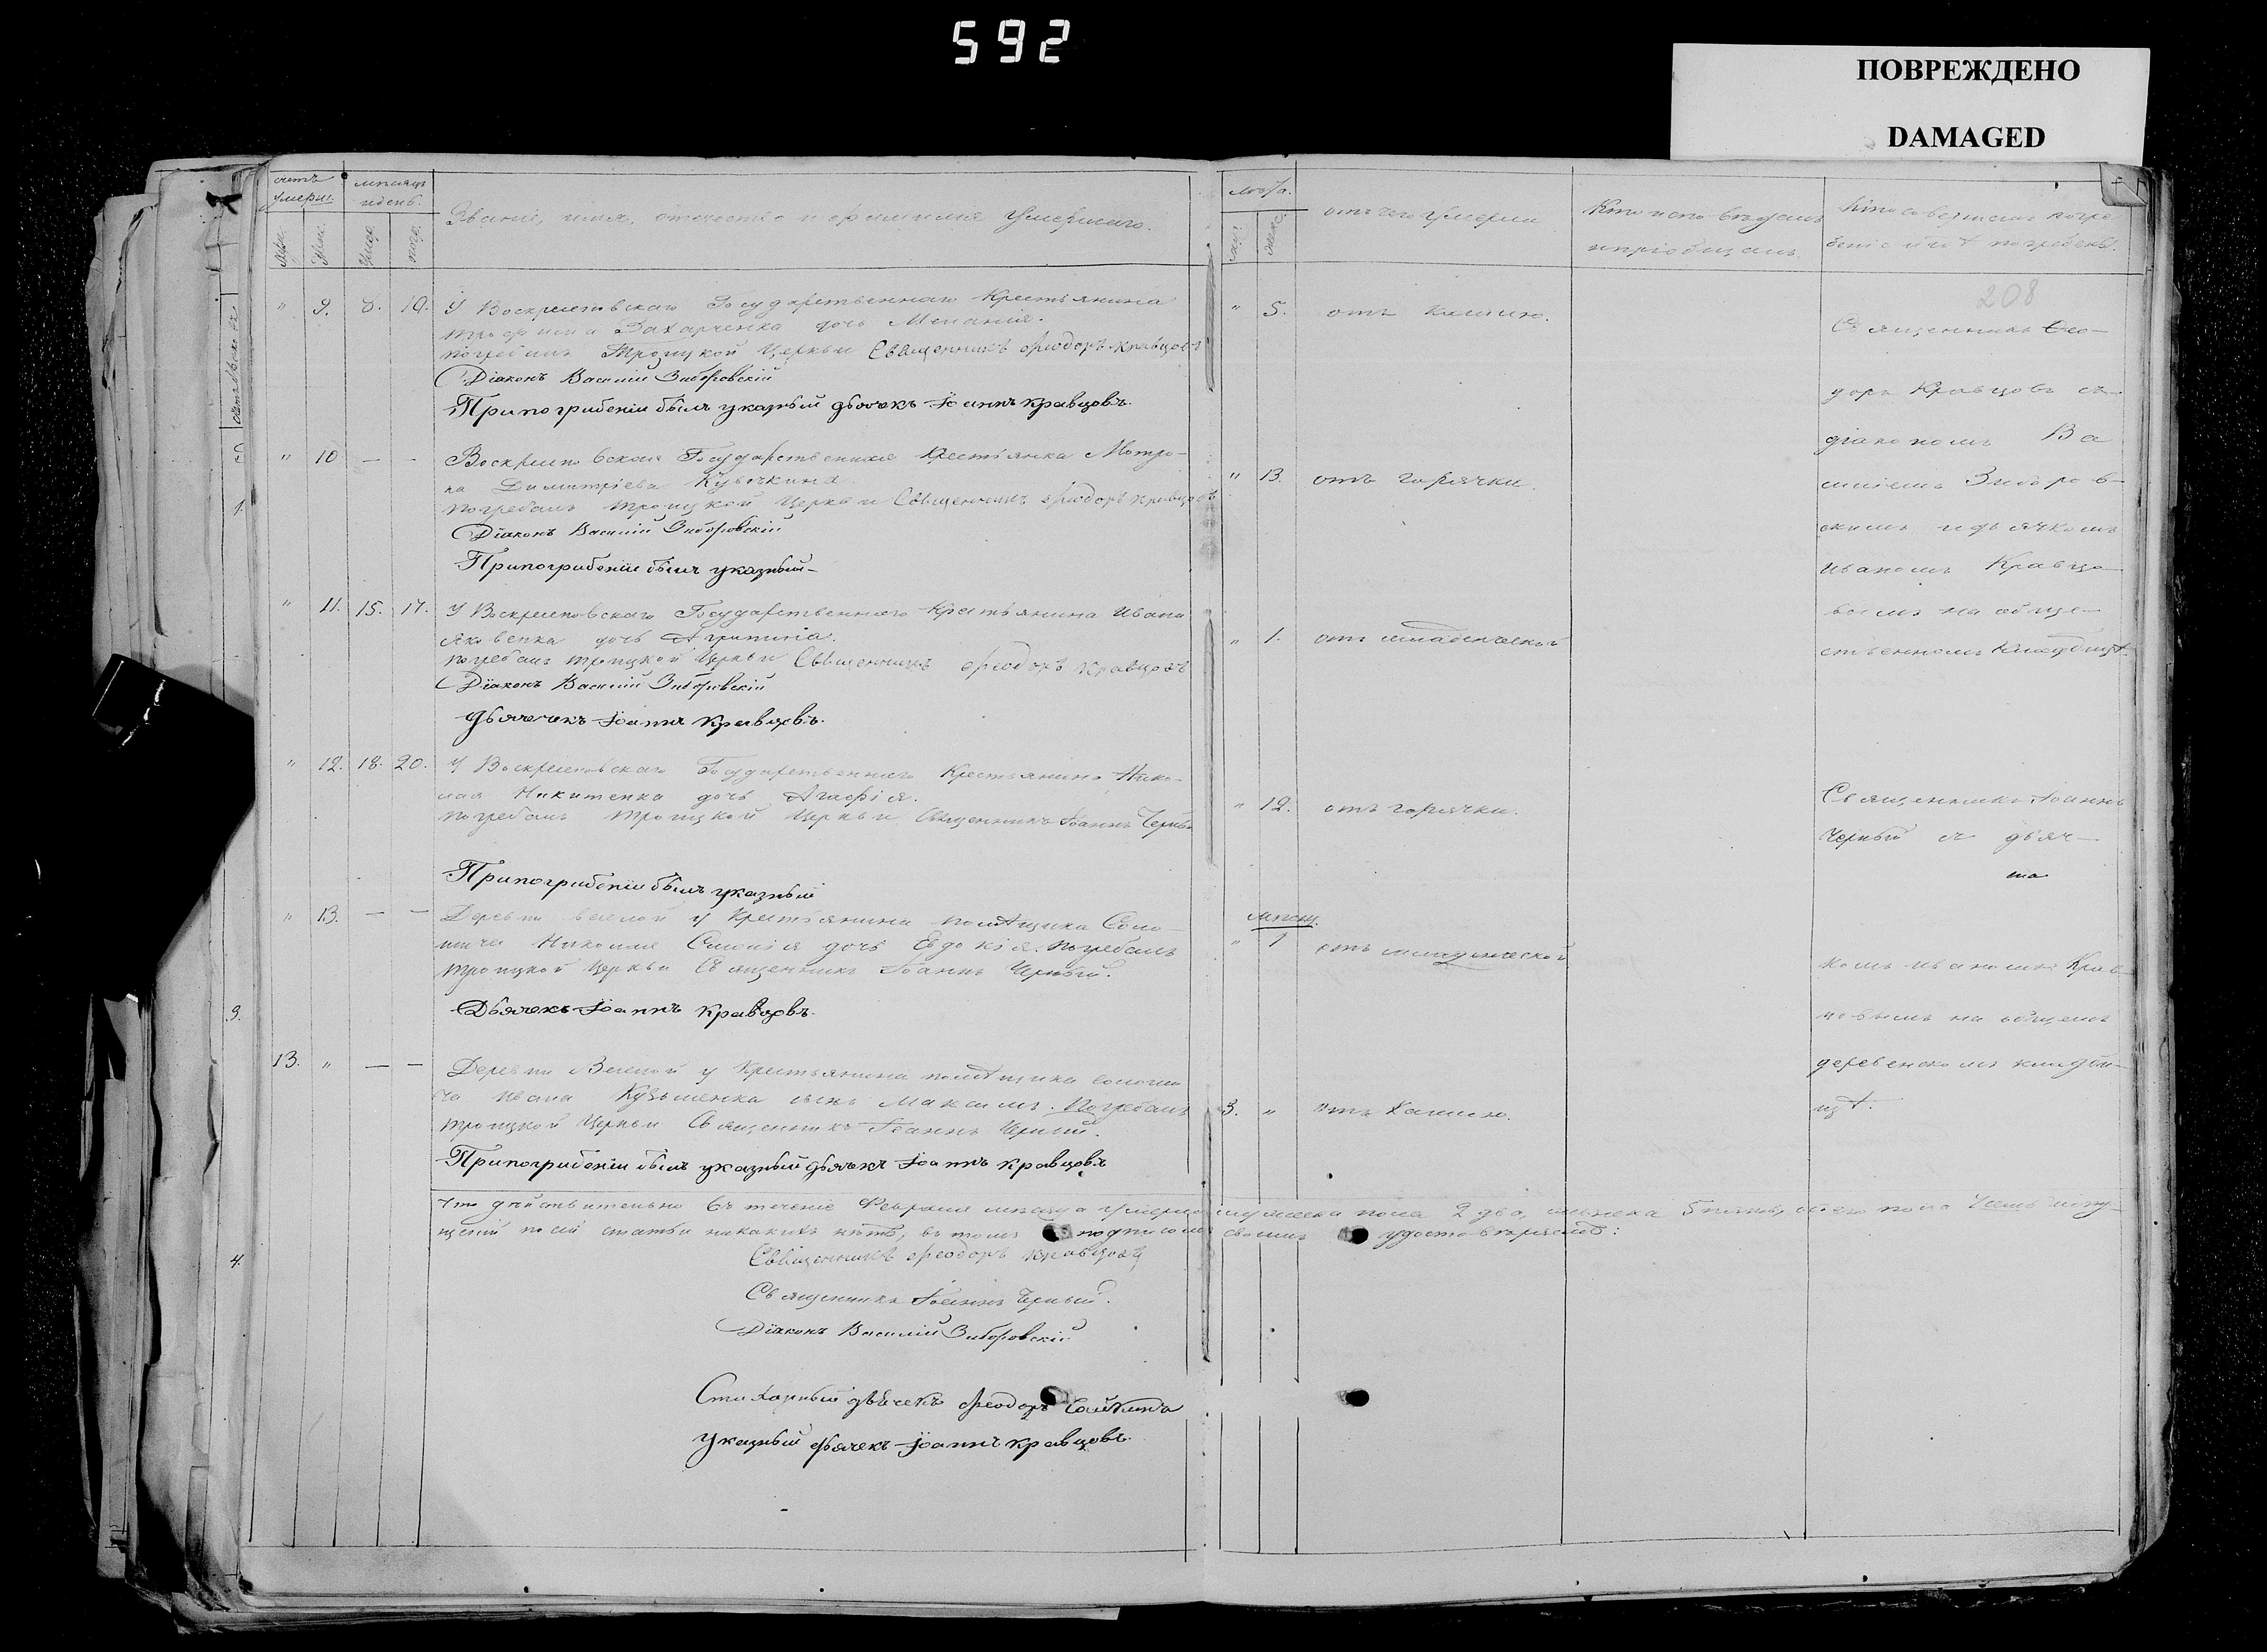 592
ПОВРЕЖДЕНО
DAMAGED
счетъ умерш.
мѣсяцъ и день.
Званіе, имя, отечество и фамилія умершаго.
Лѣта.
отъ чего умерли
Кто исповѣдалъ и пріобщалъ
Кто совершалъ погребеніе и гдѣ погребены.
208
" 9. 8. 10. У Воскресеновскаго Государственнаго Крестьянина
Трофима Захарченка дочь Меланія.
погребалъ Троицкой Церкви Священникъ Ѳеодоръ Кравцовъ
Діаконъ Василій Зиборовскій
При погрибеніи былъ указный дьячекъ Іоаннъ Кравцовъ.
" 5. отъ кашлю.
" 10 — — Воскресеновская Государственная Крестьянка Мотро-
на Димитріева
погребалъ Троицкой Церкви Священникъ Ѳеодоръ Кравцовъ
Діаконъ Василій Зиборовскій
При погрибеніи былъ указный
" 13. отъ горячки.
" 11. 15. 17. У Воскресеновскаго Государственнаго Крестьянина Ивана
Яковенка дочь Агрипина.
погребалъ Троицкой Церкви Священникъ Ѳеодоръ Кравцовъ
Діаконъ Василій Зиборовскій
Дьячекъ Іоаннъ Кравцовъ.
" 1. отъ младенческой
Священникъ Ѳео-
доръ Кравцовъ съ
діакономъ Ва
силіемъ Зиборов-
скимъ и дьячкомъ
Иваномъ Кравцо-
вымъ на обще-
ственномъ кладбищѣ
" 12. 18. 20. У Воскресеновскаго Государственнаго Крестьянина Нико-
лая Никитенка дочь Агафія.
погребалъ Троицкой Церкви Священникъ Іоаннъ Черный
При погрибеніи былъ указный
" 12. отъ горячки.
" 13. — — Деревни Веселой у Крестьянина помѣщика Соло-
Николая дочь Евдокія. погребалъ
Троицкой Церкви Священникъ Іоаннъ Черный.
Дьячекъ Іоаннъ Кравцовъ.
мѣсяц.
" 1 отъ младенческой
13. " — — Деревни Веселой у Крестьянина помѣщика
Ивана Кузьменка сынъ Максимъ. Погребалъ
Троицкой Церкви Священникъ Іоаннъ Черный.
При погрибеніи былъ указный дьячекъ Іоаннъ Кравцовъ
3. " отъ Кашлю.
Священникъ Іоаннъ
Черный съ дьяч-
комъ Иваномъ Крав-
цовымъ на общемъ
деревенскомъ кладби-
щѣ.
Что дѣйствительно въ теченіе Февраля мѣсяца умерло мужеска пола 2 два, женска 5 пять, обоего пола семь
по сей статьи никакихъ нѣтъ, въ томъ подписомъ своимъ удостовѣряемъ:
Священникъ Ѳеодоръ Кравцовъ
Священникъ Іоаннъ Черный.
Діаконъ Василій Зиборовскій
Стихарный дьячекъ Ѳеодоръ
Указный дьячекъ Іоаннъ Кравцовъ.
1.
3.
4.